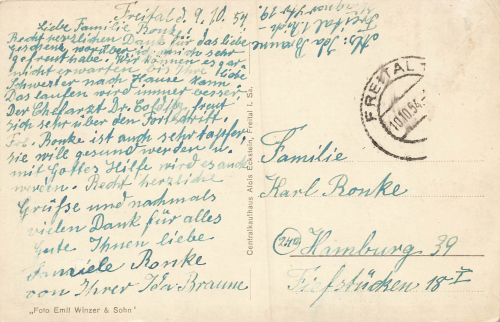 Freital d. 9.10.54.
Liebe Familie Ronke
Recht herzlichen Dank für das liebe
Geschenk, worüber ich mich so sehr
gefreut habe. Wir können es gar
nicht erwarten bis Ihre liebe
Schwester nach Hause kann.
Das laufen wird immer besser
Der Chefarzt Dr. freut
sich sehr über den Fortschritt
Frl. Ronke ist auch sehr tapfer,
sie will gesund werden u.
mit Gottes Hilfe wird es auch
werden. Recht herzliche
Grüße und nochmals
vielen Dank für alles
Gute Ihnen liebe
Familie Ronke
von Ihrer Ida Braune
"Foto Emil Winzer & Sohn"
Centralkaufhaus Alois Eckstein, Freital I. Sa.
Abs: Ida Braune
Freital I
FREITAL
10.10.54
Familie
Karl Ronke
(24a) Hamburg 39
Tiefstücken 18 I